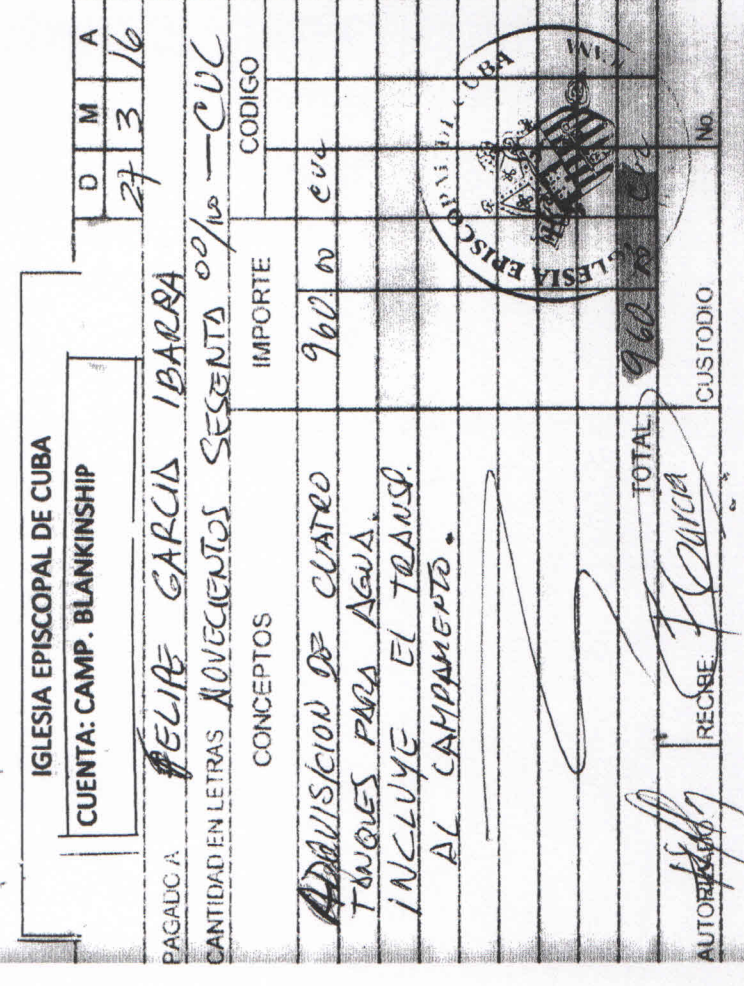 IGLESIA EPISCOPAL DE CUBA
CUENTA: CAMP. BLANKINSHIP
D M A
27 3 16
PAGADO A FELIPE GARCIA IBARRA
CANTIDAD EN LETRAS NOVECIENTOS SESENTA 00/100 — CUC
CONCEPTOS IMPORTE CODIGO
ADQUISICION DE CUATRO 960 00 CUC
TANQUES PARA AGUA.
INCLUYE EL TRANSP.
AL CAMPAMENTO.
IGLESIA EPISCOPAL DE CUBA
TOTAL 960 00 CUC
AUTORIZADO RECIBE: F Garcia CUSTODIO No.